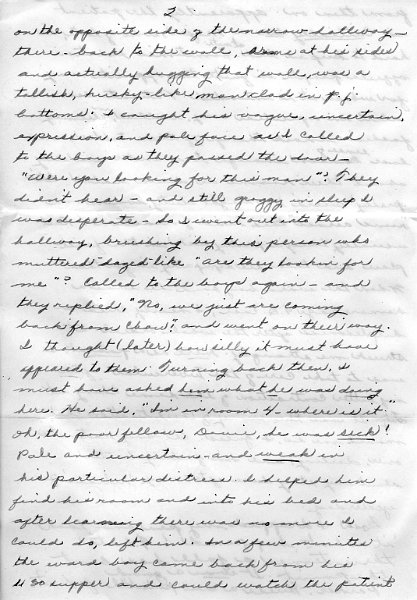 2
on the opposite side of the narrow hallway -
there - back to the wall, arms at his sides
and actually hugging that wall, was a
tallish, husky-like man clad in p.j.
bottoms. I caught his vague, uncertain,
expression, and pale face as I called
to the boys as they passed the door -
"Were you looking for this man"? They
didn't hear - and still groggy in sleep I
was desperate - so I went out into the
hallway, brushing by this person who
muttered dazed-like "Are they lookin for
me"? Called to the boys again - and
they replied, "No, we just are coming
back from chow", and went on their way.
I thought (later) how silly it must have
appeared to them. Turning back then, I
must have asked him what he was doing
here. He said, "I'm in room 4. where is it"
Oh, the poor fellow, Davie, he was sick!
Pale and uncertain - and weak in
his particular distress. I helped him
find his room and into his bed and
after learning there was no more I
could do, left him. In a few minutes
the ward boy came back from his
4 30 supper and could watch the patient